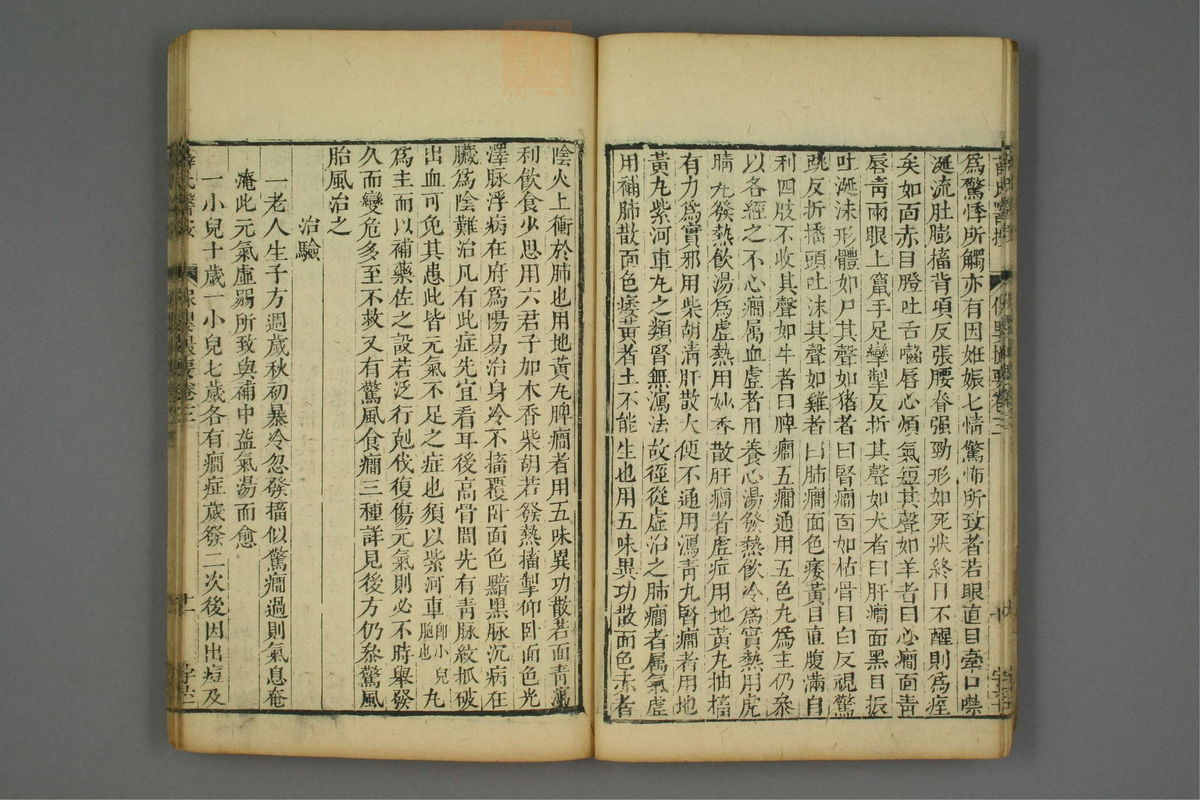 為驚悸所觸亦有因姙娠七情驚怖所致者若眼直目牽口噤
涎流肚膨搐背項反張腰脊强勁形如死狀終日不醒則為痓
矣如面赤目瞪吐舌嚙唇心煩氣短其聲如羊者曰心癎面青
唇青兩眼上竄手足攣掣反折其聲如犬者曰肝癎面黑目振
吐涎沫形體如尸其聲如猪者曰腎癎面如枯骨目白反視驚
跳反折搖頭吐沫其聲如雞者曰肺癎面色痿黃目直腹滿自
利四肢不收其聲如牛者曰脾癎五癎通用五色丸為主仍叅
以各經之不心癎属血虛者用養心湯發熱飲冷為實熱用虎
睛丸發熱飲湯為虛熱用妙香散肝癎者虛症用地黃丸抽搐
有力為實邪用柴胡清肝散大便不通用瀉青丸腎癎者用地
黃丸紫河車丸之類腎無瀉法故徑從虛治之肺癎者属氣虛
用補肺散面色痿黃者土不能生也用五味異功散面色赤者
陰火上衝於肺也用地黃丸脾癎者用五味異功散若面青瀉
利飲食少思用六君子加木香柴胡若發熱搐掣仰卧面色光
澤脉浮病在府為陽易治身冷不搐覆卧面色黯黑脉沉病在
臟為陰難治凡有此症先宜看耳後高骨間先有青脉紋抓破
出血可免其患此皆元氣不足之症也須以紫河車卽小兒胞也丸
為主而以補藥佐之設若泛行剋伐復傷元氣則必不時舉發
久而變危多至不救又有驚風食癎三種詳見後方仍叅驚風
胎風治之
治驗
一老人生子方週歲秋初暴冷忽發搐似驚癎過則氣息奄
淹此元氣虛弱所致與補中益氣湯而愈
一小兒十歲一小兒七歲各有癎症歲發二次後因出痘及